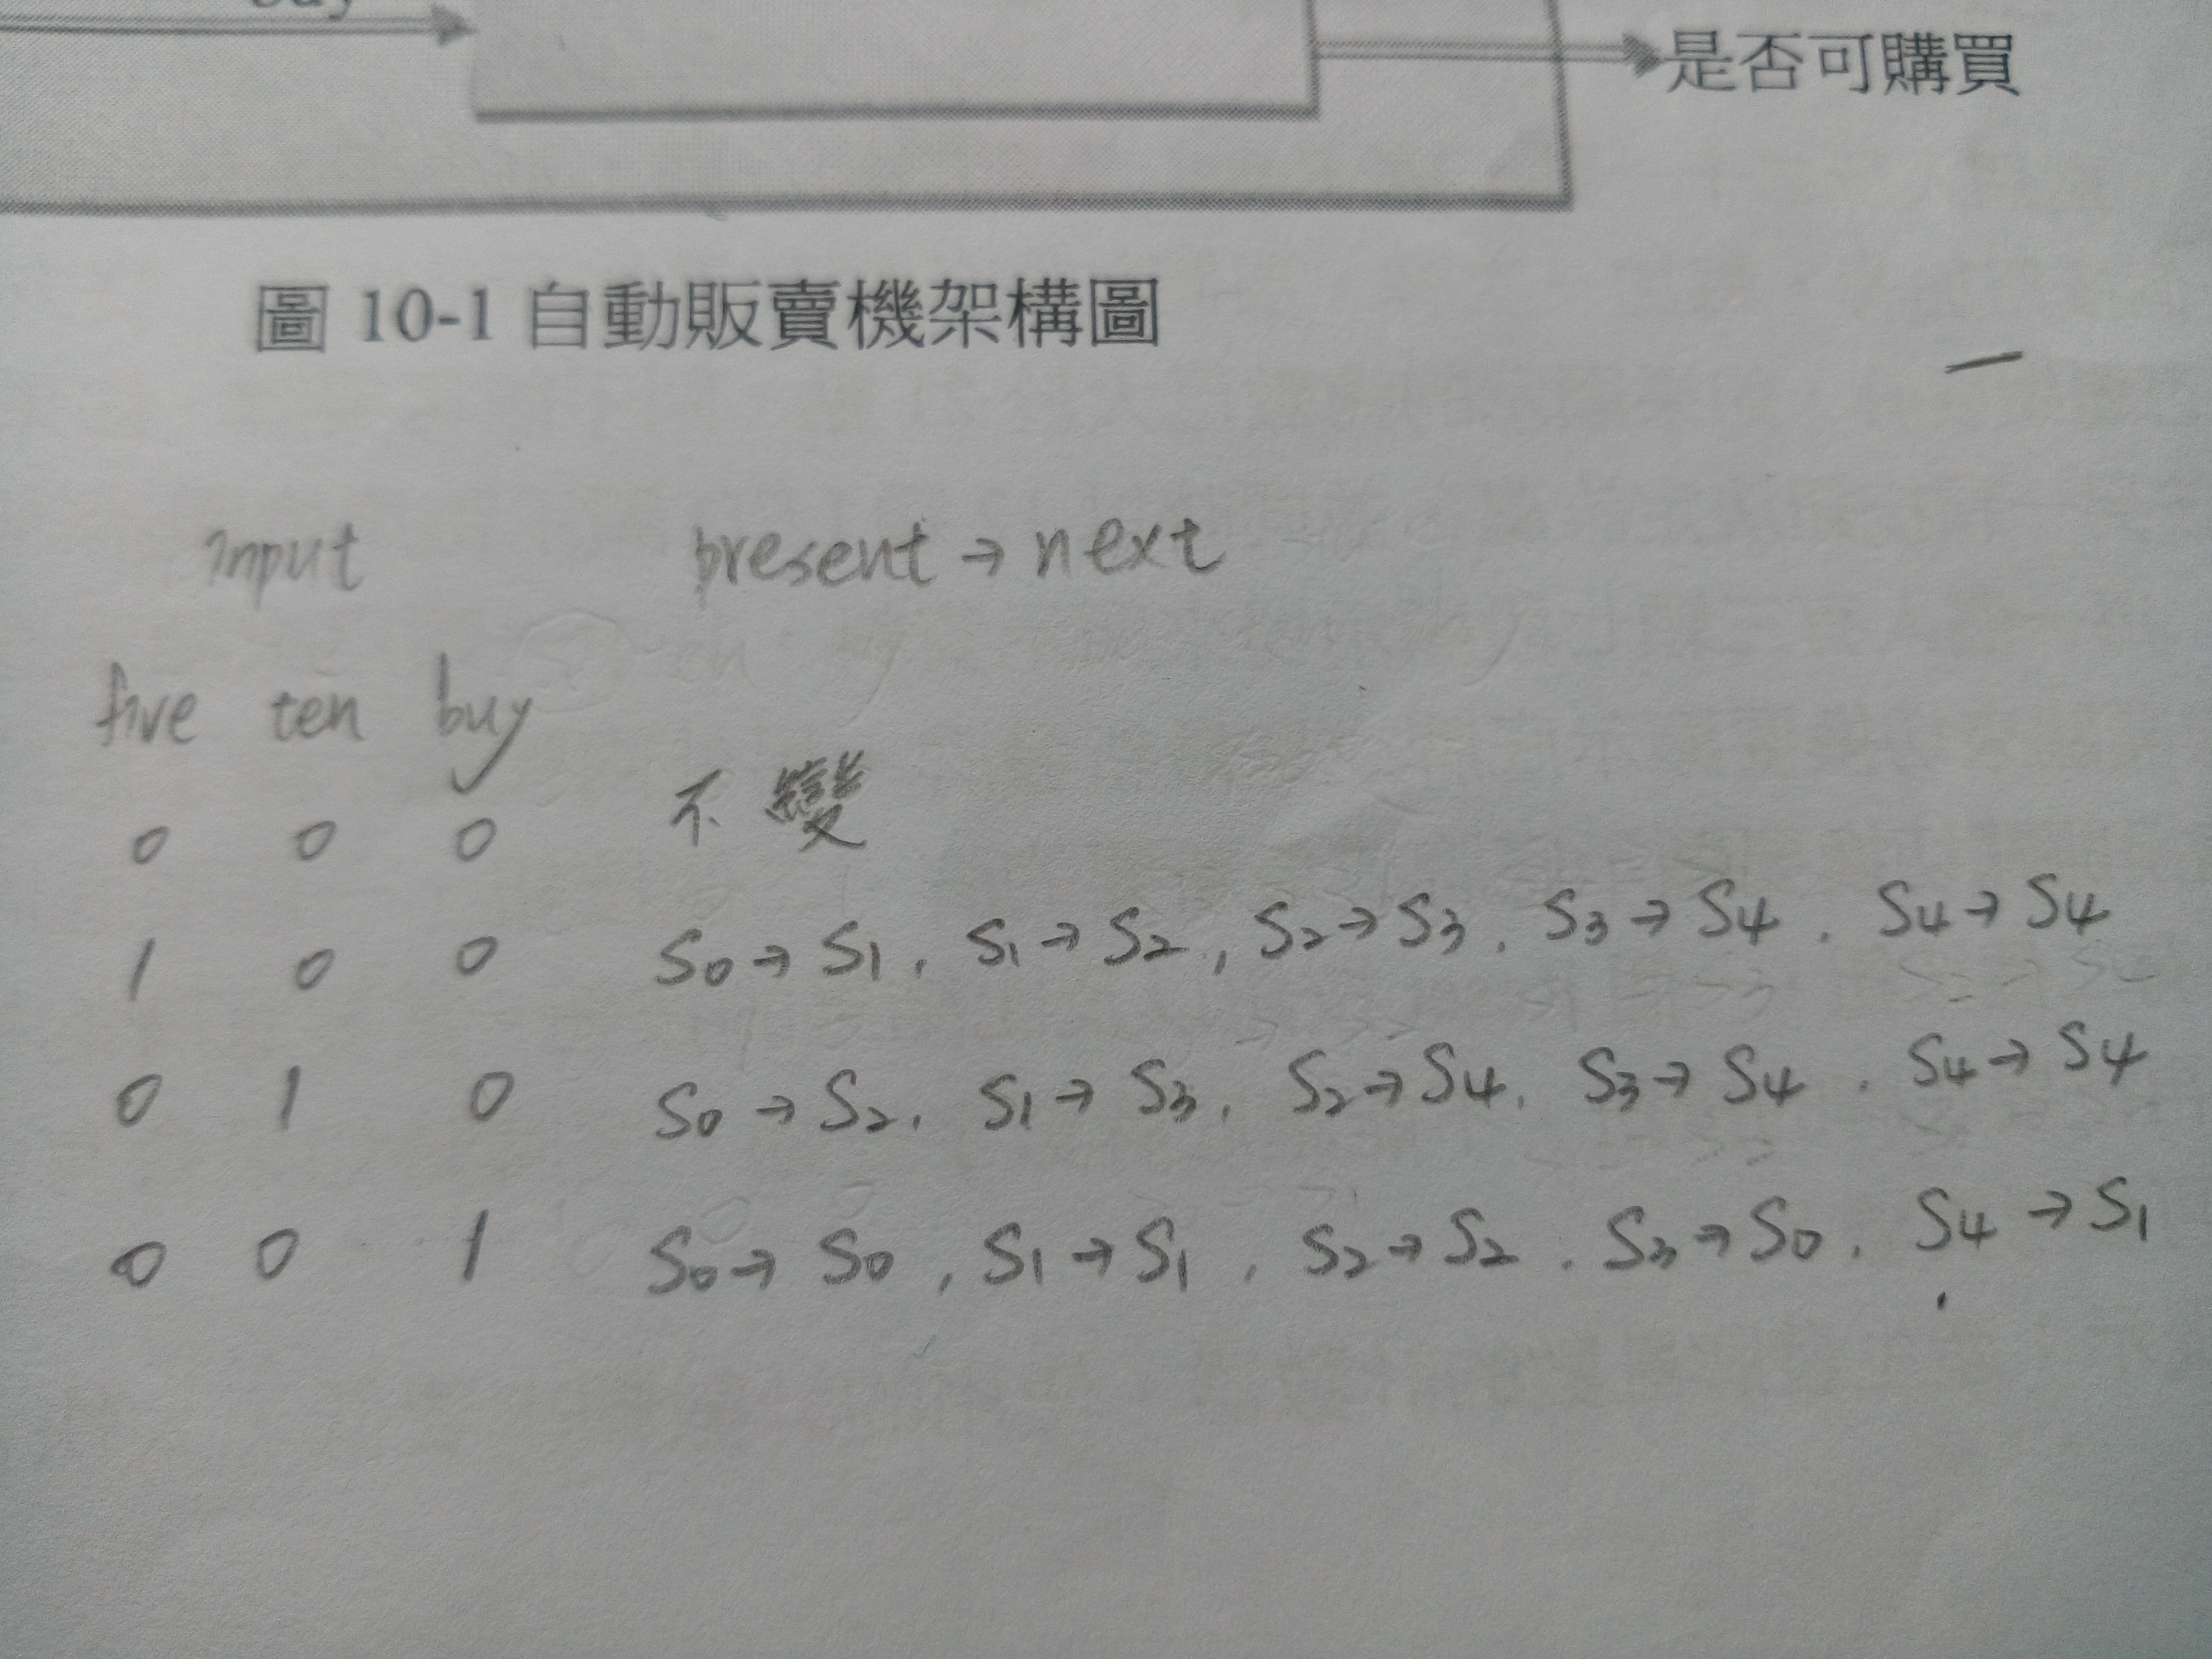 buy
是否可購買
圖 10-1 自動販賣機架構圖
input present → next
five ten buy
0 0 0 不變
1 0 0 S0 → S1, S1 → S2, S2 → S3, S3 → S4, S4 → S4
0 1 0 S0 → S2, S1 → S3, S2 → S4, S3 → S4, S4 → S4
0 0 1 S0 → S0, S1 → S1, S2 → S2, S3 → S0, S4 → S1